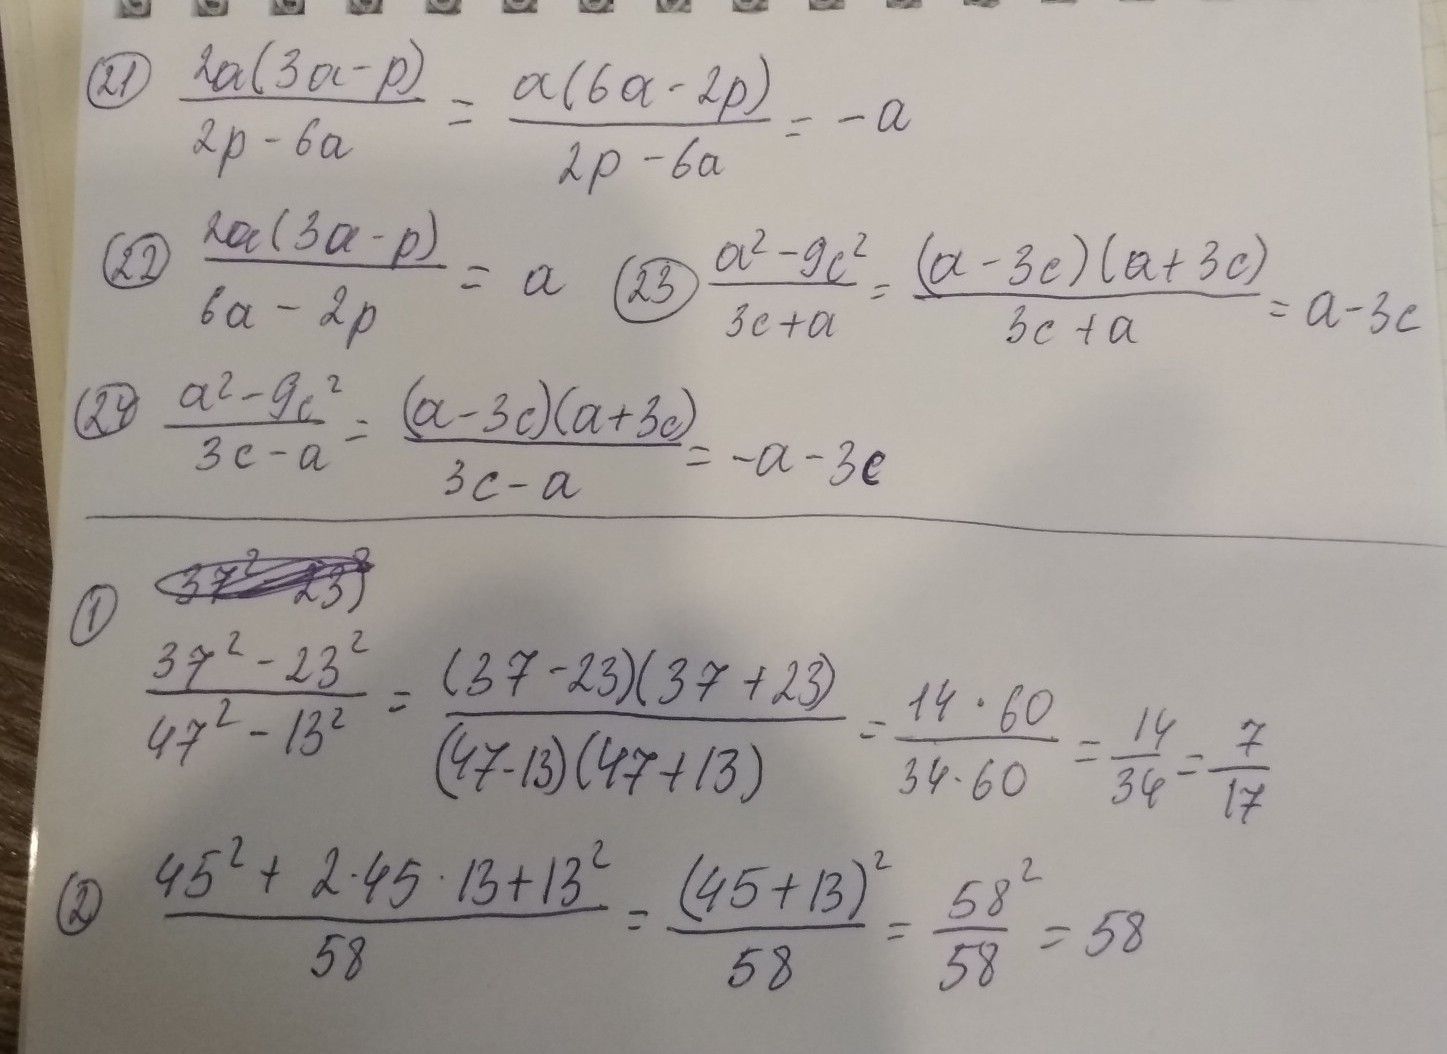 21 2a(3a-p)/2p-6a = a(6a-2p)/2p-6a = -a
22 2a(3a-p)/6a-2p = a 23 a²-9c²/3c+a = (a-3c)(a+3c)/3c+a = a-3c
24 a²-9c²/3c-a = (a-3c)(a+3c)/3c-a = -a-3c
1 37²-23²/47²-13² = (37-23)(37+23)/(47-13)(47+13) = 14·60/34·60 = 14/34 = 7/17
2 45²+2·45·13+13²/58 = (45+13)²/58 = 58²/58 = 58